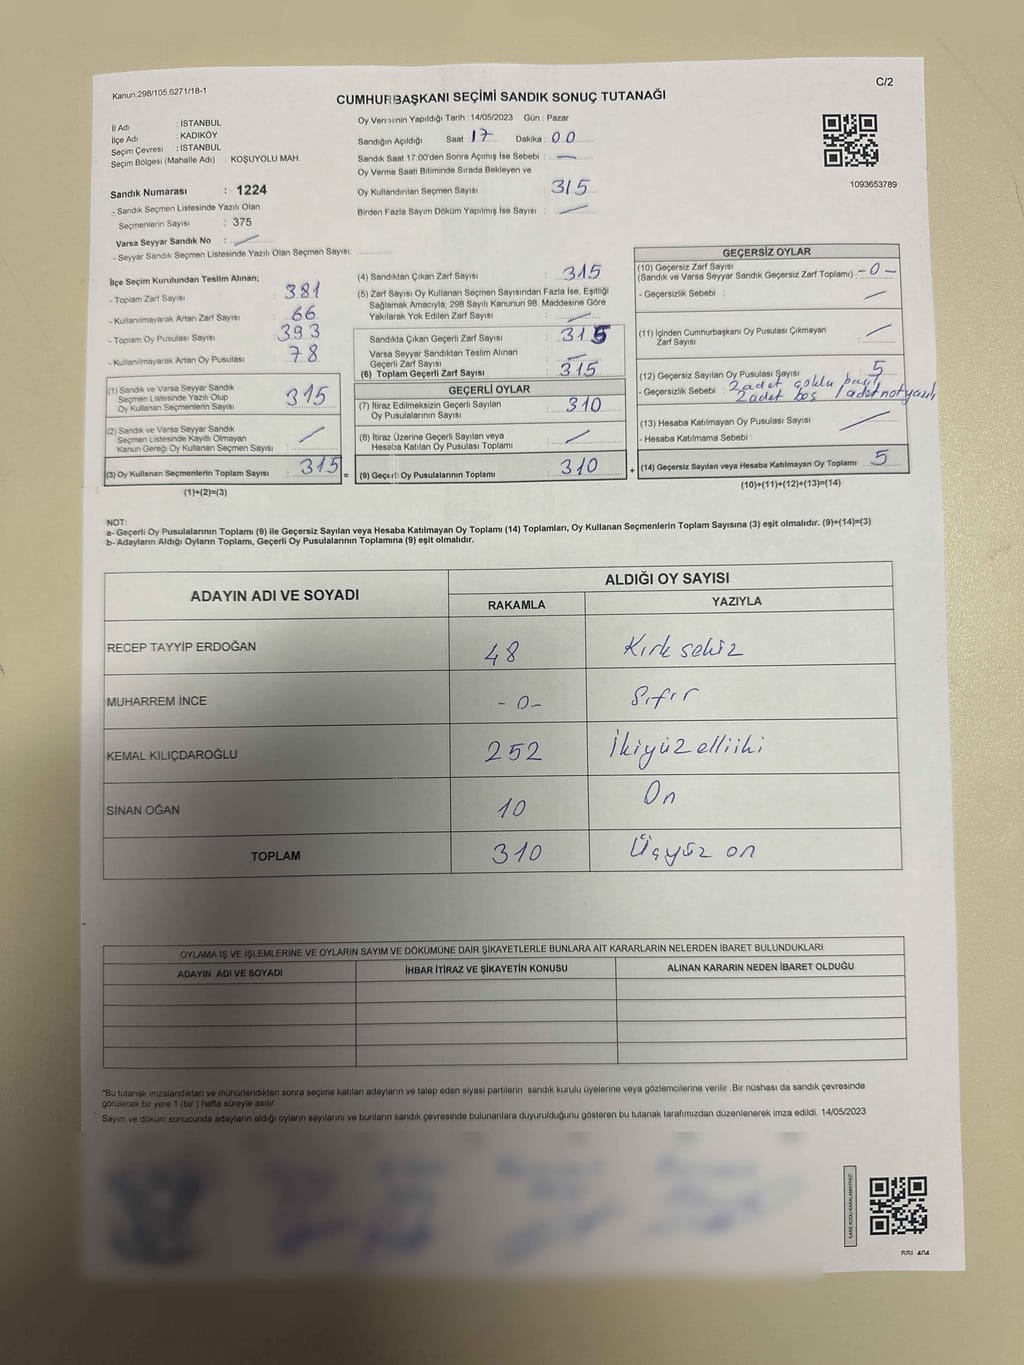 Kanun.298/105.6271/18-1
C/2
CUMHURBAŞKANI SEÇİMİ SANDIK SONUÇ TUTANAĞI
İl Adı : İSTANBUL
İlçe Adı : KADIKÖY
Seçim Çevresi : İSTANBUL
Seçim Bölgesi (Mahalle Adı) : KOŞUYOLU MAH.
Sandık Numarası : 1224
- Sandık Seçmen Listesinde Yazılı Olan
Seçmenlerin Sayısı : 375
Varsa Seyyar Sandık No :
- Seyyar Sandık Seçmen Listesinde Yazılı Olan Seçmen Sayısı:
Oy Vermenin Yapıldığı Tarih : 14/05/2023 Gün : Pazar
Sandığın Açıldığı Saat : 17 Dakika : 00
Sandık Saat 17:00'den Sonra Açımış İse Sebebi : —
Oy Verme Saati Bitiminde Sırada Bekleyen ve
Oy Kullandırılan Seçmen Sayısı : 315
Birden Fazla Sayım Döküm Yapılmış İse Sayısı :
1093653789
İlçe Seçim Kurulundan Teslim Alınan;
- Toplam Zarf Sayısı : 381
- Kullanılmayarak Artan Zarf Sayısı : 66
- Toplam Oy Pusulası Sayısı : 393
- Kullanılmayarak Artan Oy Pusulası : 78
(1) Sandık ve Varsa Seyyar Sandık
Seçmen Listesinde Yazılı Olup
Oy Kullanan Seçmenlerin Sayısı : 315
(2) Sandık ve Varsa Seyyar Sandık
Seçmen Listesinde Kayıtlı Olmayan
Kanun Gereği Oy Kullanan Seçmen Sayısı :
(3) Oy Kullanan Seçmenlerin Toplam Sayısı : 315 =
(1)+(2)=(3)
(4) Sandıktan Çıkan Zarf Sayısı : 315
(5) Zarf Sayısı Oy Kullanan Seçmen Sayısından Fazla İse, Eşitliği
Sağlamak Amacıyla; 298 Sayılı Kanunun 98. Maddesine Göre
Yakılarak Yok Edilen Zarf Sayısı :
Sandıkta Çıkan Geçerli Zarf Sayısı : 315
Varsa Seyyar Sandıktan Teslim Alınan
Geçerli Zarf Sayısı :
(6) Toplam Geçerli Zarf Sayısı : 315
GEÇERLİ OYLAR
(7) İtiraz Edilmeksizin Geçerli Sayılan
Oy Pusulalarının Sayısı : 310
(8) İtiraz Üzerine Geçerli Sayılan veya
Hesaba Katılan Oy Pusulası Toplamı :
(9) Geçerli Oy Pusulalarının Toplamı : 310 +
GEÇERSİZ OYLAR
(10) Geçersiz Zarf Sayısı
(Sandık ve Varsa Seyyar Sandık Geçersiz Zarf Toplamı) : -0-
- Geçersizlik Sebebi :
(11) İçinden Cumhurbaşkanı Oy Pusulası Çıkmayan
Zarf Sayısı :
(12) Geçersiz Sayılan Oy Pusulası Sayısı : 5
- Geçersizlik Sebebi : 2 adet çoklu basıl
2 adet boş 1 adet not yazılı
(13) Hesaba Katılmayan Oy Pusulası Sayısı :
- Hesaba Katılmama Sebebi :
(14) Geçersiz Sayılan veya Hesaba Katılmayan Oy Toplamı : 5
(10)+(11)+(12)+(13)=(14)
NOT:
a- Geçerli Oy Pusulalarının Toplamı (9) ile Geçersiz Sayılan veya Hesaba Katılmayan Oy Toplamı (14) Toplamları, Oy Kullanan Seçmenlerin Toplam Sayısına (3) eşit olmalıdır. (9)+(14)=(3)
b- Adayların Aldığı Oyların Toplamı, Geçerli Oy Pusulalarının Toplamına (9) eşit olmalıdır.
ADAYIN ADI VE SOYADI ALDIĞI OY SAYISI
RAKAMLA YAZIYLA
RECEP TAYYİP ERDOĞAN 48 Kırk sekiz
MUHARREM İNCE -0- Sıfır
KEMAL KILIÇDAROĞLU 252 İkiyüz elliiki
SİNAN OĞAN 10 On
TOPLAM 310 Üçyüz on
OYLAMA İŞ VE İŞLEMLERİNE VE OYLARIN SAYIM VE DÖKÜMÜNE DAİR ŞİKAYETLERLE BUNLARA AİT KARARLARIN NELERDEN İBARET BULUNDUKLARI
ADAYIN ADI VE SOYADI İHBAR İTİRAZ VE ŞİKAYETİN KONUSU ALINAN KARARIN NEDEN İBARET OLDUĞU
*Bu tutanak imzalandıktan ve mühürlendikten sonra seçime katılan adayların ve talep eden siyasi partilerin sandık kurulu üyelerine veya gözlemcilerine verilir .Bir nüshası da sandık çevresinde
görülecek bir yere 1 (bir ) hafta süreyle asılır.
Sayım ve döküm sonucunda adayların aldığı oyların sayılarını ve bunların sandık çevresinde bulunanlara duyurulduğunu gösteren bu tutanak tarafımızdan düzenlenerek imza edildi. 14/05/2023
KARE KODU KARALAMAYINIZ!